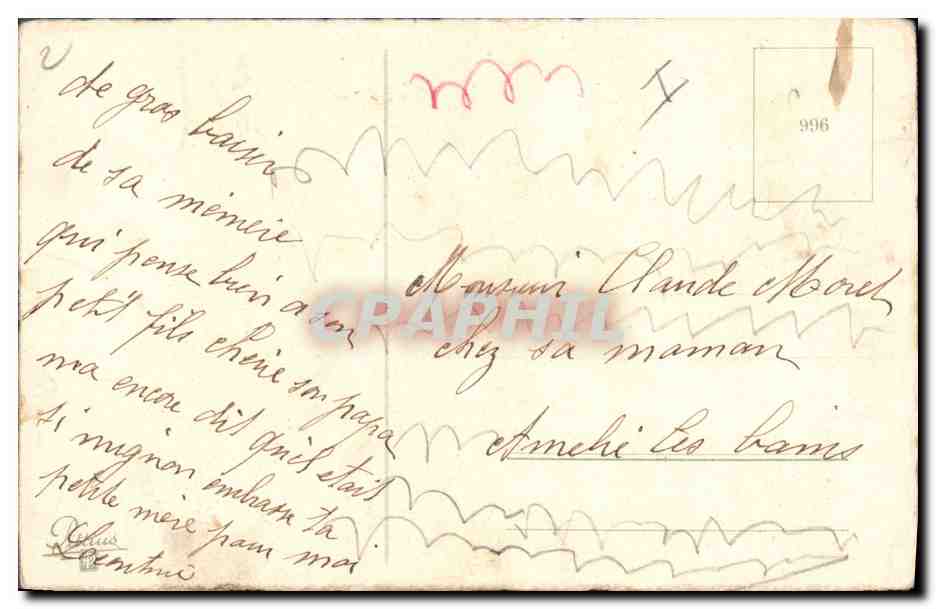 de gros baiser
de sa mémère
qui pense bien a son
petit fils chérie son papa
ma encore dit qu'il etait
si mignon embrasse ta
petite mère pour moi
996
Monsieur Claude Moret
chez sa maman
Amelie les bains
CPAPHIL